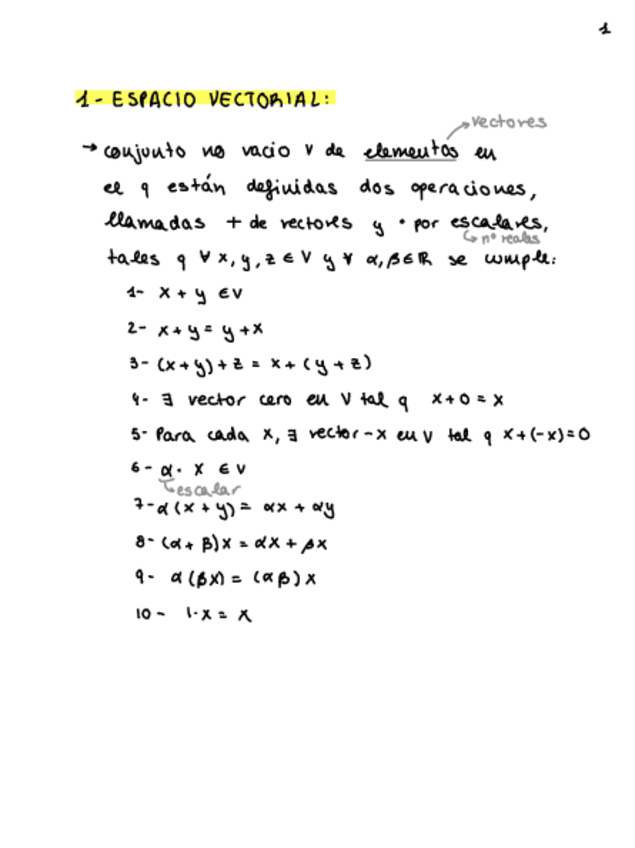 1
1- ESPACIO VECTORIAL:
vectores
→ conjunto no vacio V de elementos en
el q están definidas dos operaciones,
llamadas + de vectores y · por escalares,
↳ nº reales
tales q ∀ x, y, z ∈ V y ∀ α, β ∈ ℝ se cumple:
1- x + y ∈ V
2- x + y = y + x
3- (x + y) + z = x + (y + z)
4- ∃ vector cero en V tal q x + 0 = x
5- Para cada x, ∃ vector -x en V tal q x + (-x) = 0
6- α · x ∈ V
↳ escalar
7- α (x + y) = αx + αy
8- (α + β) x = αx + βx
9- α (βx) = (αβ) x
10- 1·x = x